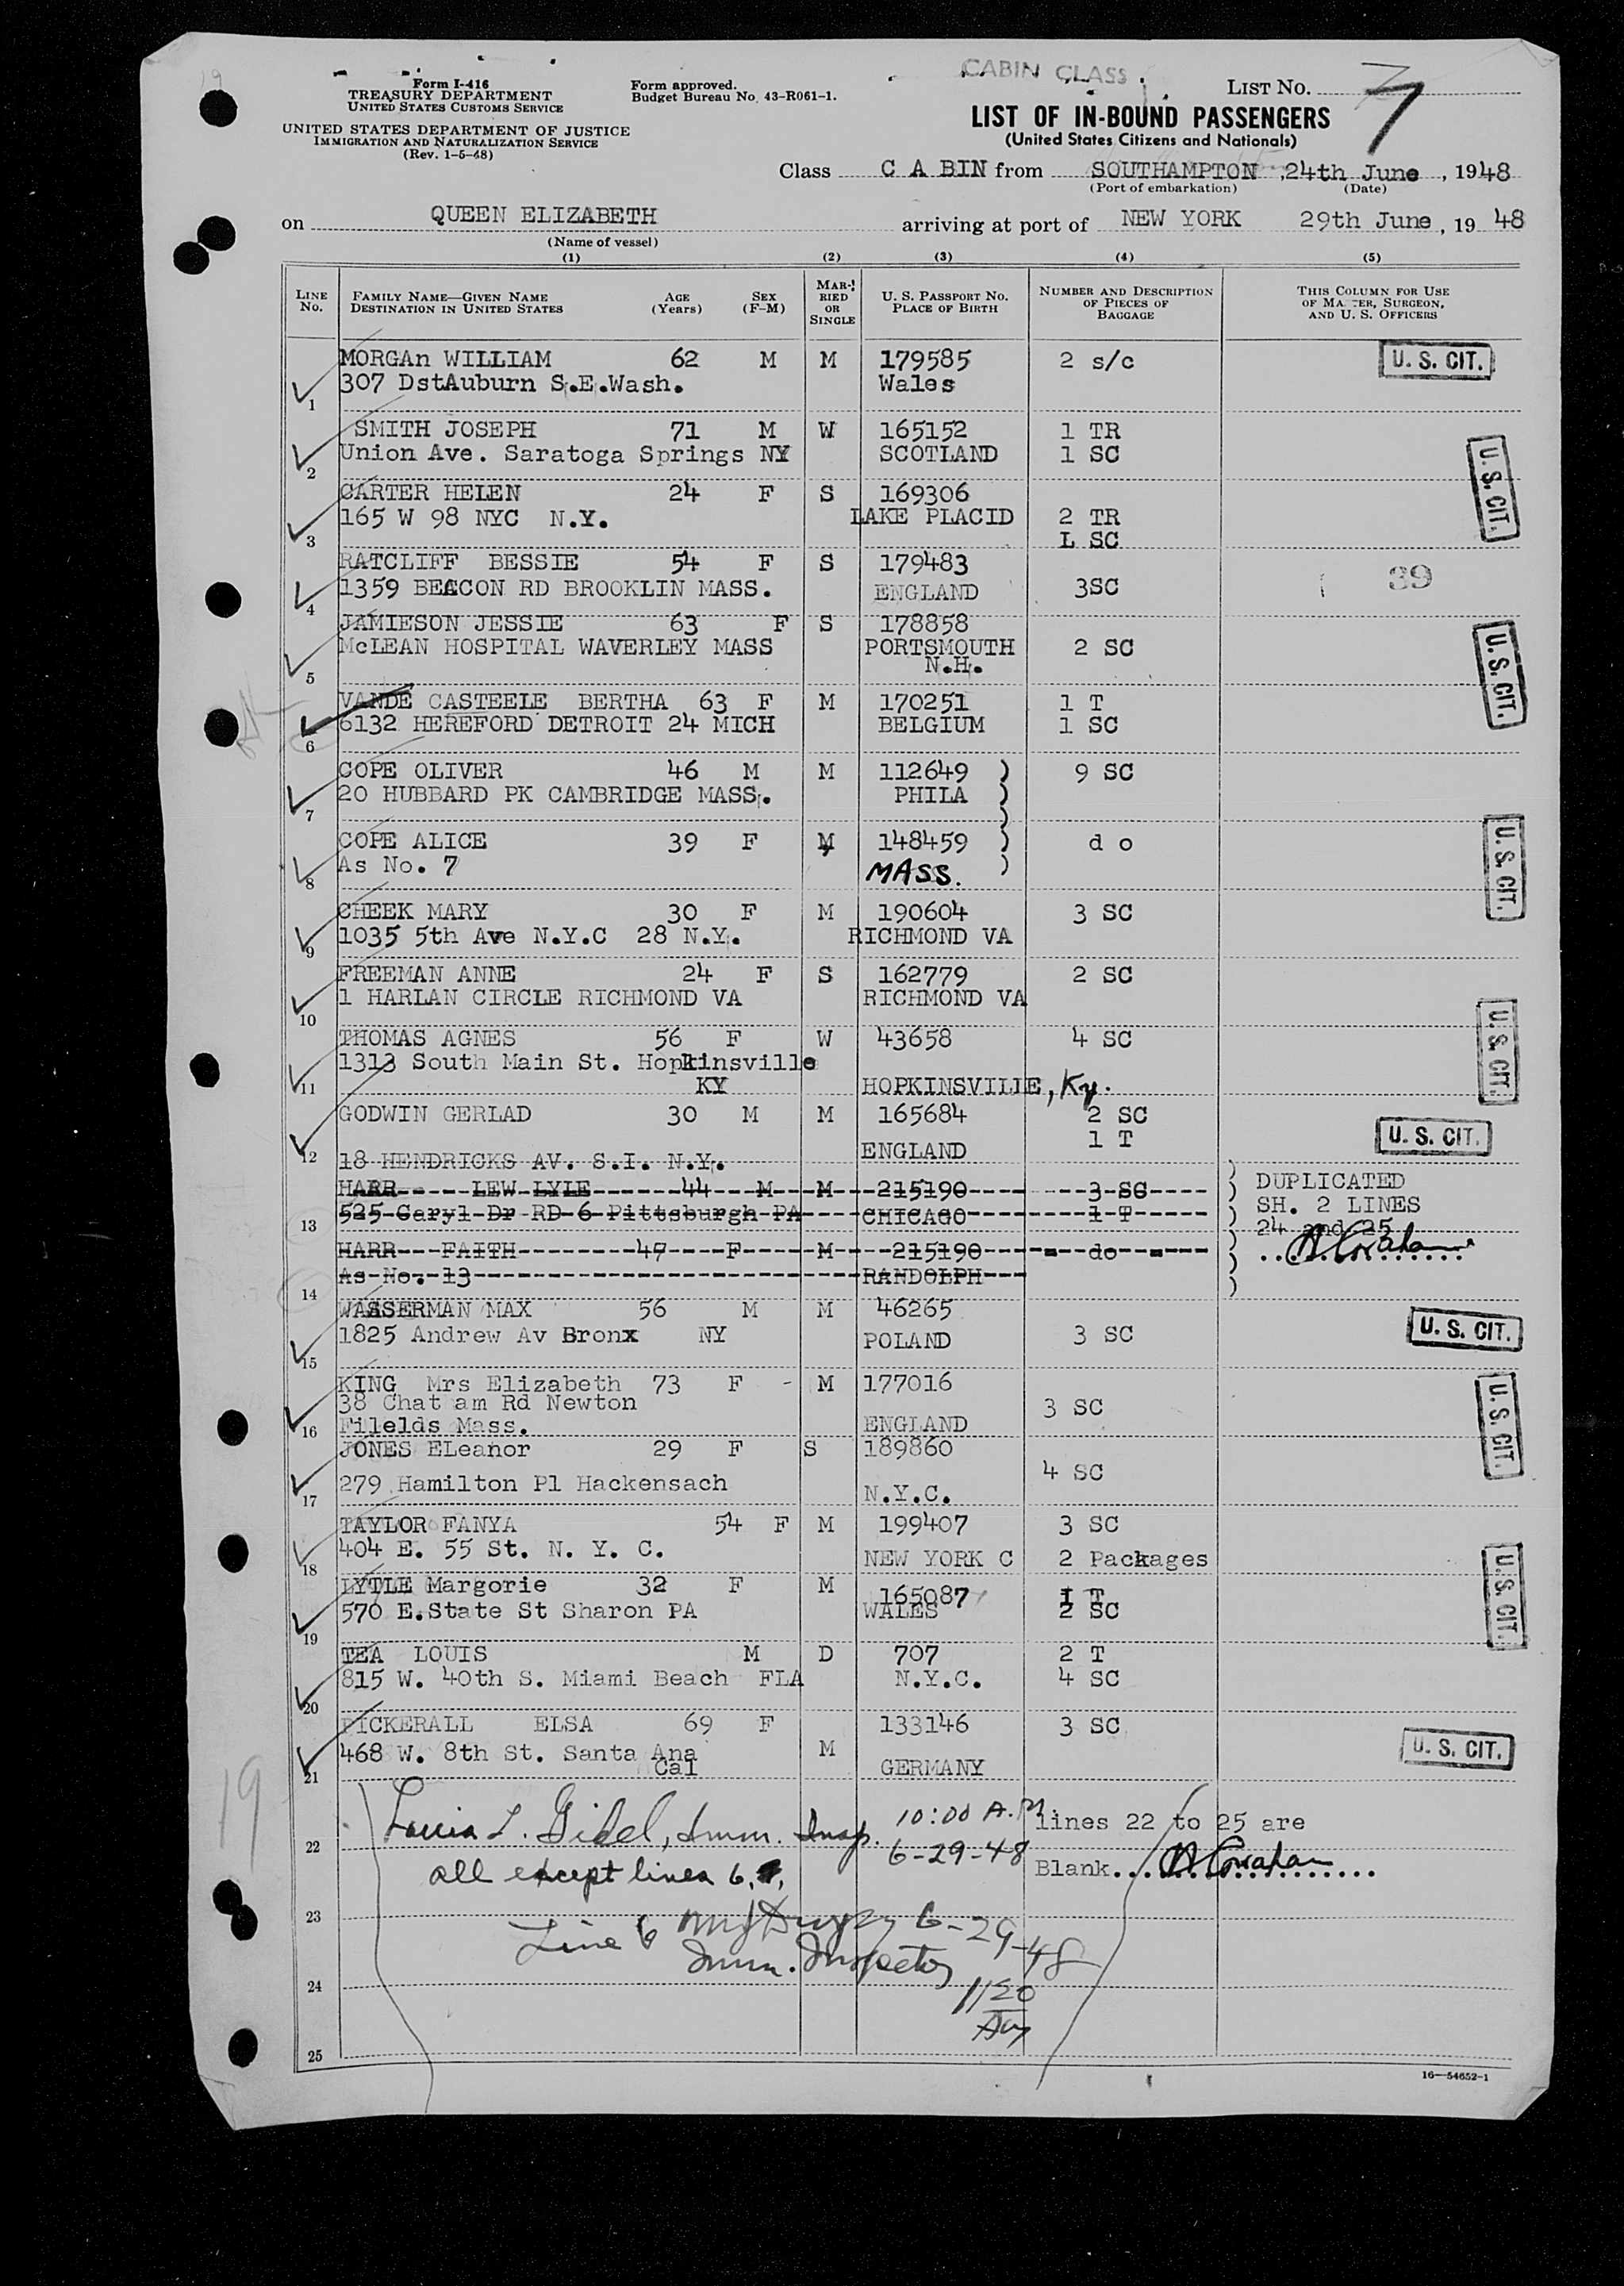 CABIN CLASS
Form I-416
TREASURY DEPARTMENT
UNITED STATES CUSTOMS SERVICE
UNITED STATES DEPARTMENT OF JUSTICE
IMMIGRATION AND NATURALIZATION SERVICE
(Rev. 1-5-48)
Form approved.
Budget Bureau No. 43-R061-1.
LIST No. 7
LIST OF IN-BOUND PASSENGERS
(United States Citizens and Nationals)
Class C A BIN from SOUTHAMPTON, 24th June, 1948
(Port of embarkation) (Date)
on QUEEN ELIZABETH arriving at port of NEW YORK 29th June, 19 48
(Name of vessel)
(1) (2) (3) (4) (5)
LINE No. FAMILY NAME—GIVEN NAME DESTINATION IN UNITED STATES AGE (Years) SEX (F-M) MARRIED OR SINGLE U. S. PASSPORT NO. PLACE OF BIRTH NUMBER AND DESCRIPTION OF PIECES OF BAGGAGE THIS COLUMN FOR USE OF MASTER, SURGEON, AND U. S. OFFICERS
MORGAn WILLIAM 62 M M 179585 2 s/c U. S. CIT.
1 307 DstAuburn S.E.Wash. Wales
SMITH JOSEPH 71 M W 165152 1 TR
2 Union Ave. Saratoga Springs NY SCOTLAND 1 SC U. S. CIT.
CARTER HELEN 24 F S 169306
165 W 98 NYC N.Y. LAKE PLACID 2 TR
3 L SC
RATCLIFF BESSIE 54 F S 179483 39
4 1359 BEACON RD BROOKLIN MASS. ENGLAND 3SC
JAMIESON JESSIE 63 F S 178858
McLEAN HOSPITAL WAVERLEY MASS PORTSMOUTH 2 SC U. S. CIT.
5 N.H.
VANDE CASTEELE BERTHA 63 F M 170251 1 T
6 6132 HEREFORD DETROIT 24 MICH BELGIUM 1 SC
COPE OLIVER 46 M M 112649 ) 9 SC
7 20 HUBBARD PK CAMBRIDGE MASS. PHILA )
COPE ALICE 39 F M 148459 ) d o U. S. CIT.
8 As No. 7 MASS. )
CHEEK MARY 30 F M 190604 3 SC
9 1035 5th Ave N.Y.C 28 N.Y. RICHMOND VA
FREEMAN ANNE 24 F S 162779 2 SC
10 1 HARLAN CIRCLE RICHMOND VA RICHMOND VA
THOMAS AGNES 56 F W 43658 4 SC U. S. CIT.
1313 South Main St. Hopkinsville
11 KY HOPKINSVILLE, Ky.
GODWIN GERLAD 30 M M 165684 2 SC U. S. CIT.
1 T
12 18 HENDRICKS AV. S.I. N.Y. ENGLAND
HARR LEW LYLE 44 M M 215190 3 SC ) DUPLICATED
13 525 Caryl Dr RD 6 Pittsburgh PA CHICAGO 1 T ) SH. 2 LINES
HARR FAITH 47 F M 215190 - do - ) 24 and 25
14 As No. 13 RANDOLPH )
WASSERMAN MAX 56 M M 46265
15 1825 Andrew Av Bronx NY POLAND 3 SC U. S. CIT.
KING Mrs Elizabeth 73 F - M 177016
38 Chat am Rd Newton 3 SC U. S. CIT.
16 Filelds Mass. ENGLAND
JONES ELeanor 29 F S 189860
4 SC
17 279 Hamilton Pl Hackensach N.Y.C.
TAYLOR FANYA 54 F M 199407 3 SC
18 404 E. 55 St. N. Y. C. NEW YORK C 2 Packages
LYTLE Margorie 32 F M 165087 1 T U. S. CIT.
19 570 E.State St Sharon PA WALES 2 SC
TEA LOUIS M D 707 2 T
20 815 W. 40th S. Miami Beach FLA N.Y.C. 4 SC
PICKERALL ELSA 69 F 133146 3 SC
468 W. 8th St. Santa Ana M U. S. CIT.
21 Cal GERMANY
22 Gidel, Imm. Insp. 10:00 A.M. lines 22 to 25 are
6-29-48 Blank
all except lines 6,
23 Line 6 6-29-48
Imm. Inspector
24 1120
25
19
16—54652-1